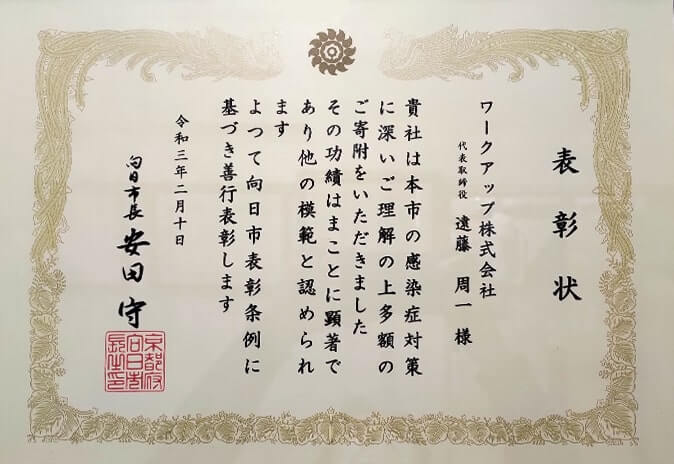 表彰状
ワークアップ株式会社
代表取締役 遠藤 周一 様
貴社は本市の感染症対策
に深いご理解の上多額の
ご寄附をいただきました
その功績はまことに顕著で
あり他の模範と認められ
ます
よつて向日市表彰条例に
基づき善行表彰します
令和三年二月十日
向日市長 安田 守
京都府
向日市
長之印